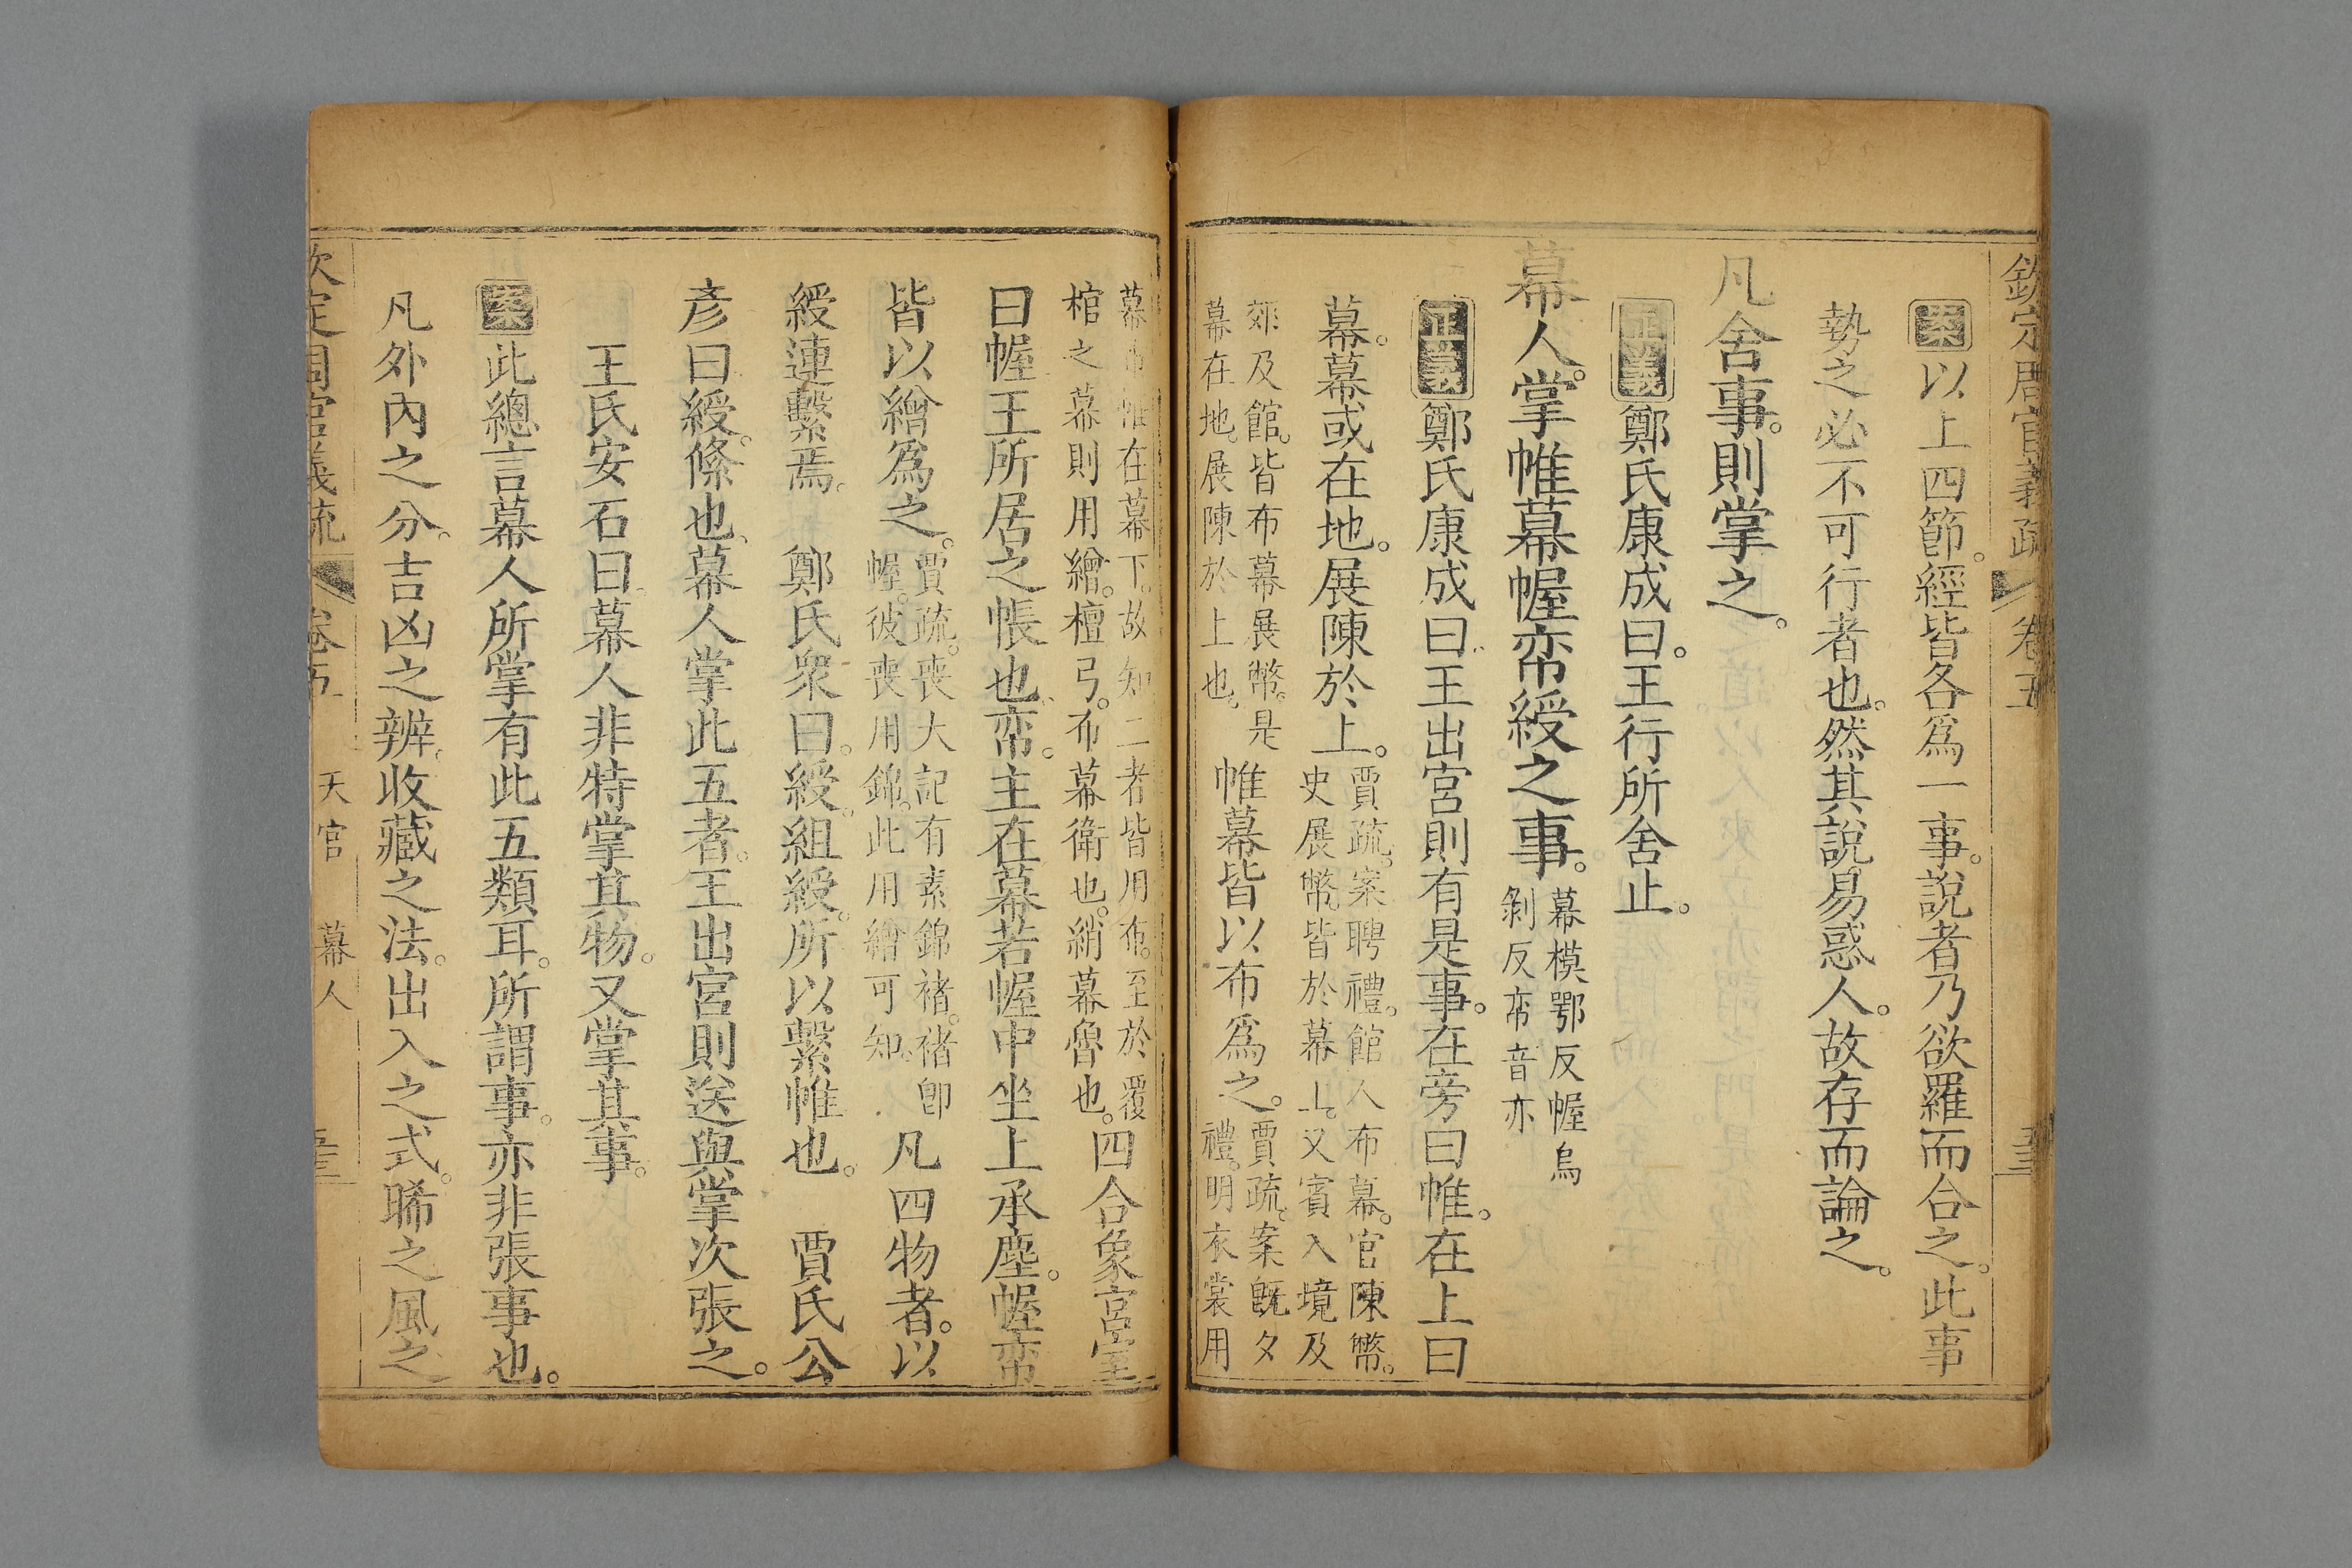 欽定周官義疏 卷五
案以上四節。經皆各爲一事。說者乃欲羅而合之。此事
勢之必不可行者也。然其說易惑人。故存而論之。
凡舍事。則掌之。
正義鄭氏康成曰。王行所舍止。
幕人。掌帷幕幄帟綬之事。幕模鄂反幄烏
剝反帟音亦
正義鄭氏康成曰。王出宮則有是事。在旁曰帷。在上曰
幕。幕或在地。展陳於上。賈疏。案聘禮。館人布幕。官陳幣。
史展幣。皆於幕上。又賓入境及
郊及館。皆布幕展幣。是
幕在地。展陳於上也。帷幕皆以布爲之。賈疏。案旣夕
禮。明衣裳用
幕布帷在幕下。故知二者皆用布。至於覆
棺之幕則用繒。檀弓。布幕衛也。綃幕魯也。四合象宮室
曰幄。王所居之帳也。帟。主在幕若幄中坐上承塵。幄帟
皆以繒爲之。賈疏。喪大記有素錦褚。褚卽
幄。彼喪用錦。此用繒可知。凡四物者。以
綬連繫焉。 鄭氏衆曰。綬。組綬。所以繫帷也。 賈氏公
彥曰。綬。絛也。幕人掌此五者。王出宮則送與掌次張之。
王氏安石曰。幕人非特掌其物。又掌其事。
案此總言幕人所掌有此五類耳。所謂事。亦非張事也。
凡外內之分。吉凶之辨。收藏之法。出入之式。晞之風之
欽定周官義疏 卷五 天官 幕人